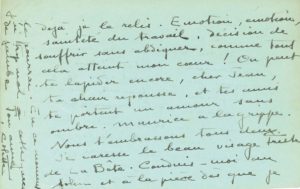 déjà je la relis. Emotion, émotion,
sainteté du travail, décision de
souffrir sans abdiquer, comme tout
cela atteint mon cœur ! On peut
te lapider encore, cher Jean,
ta chair repousse, et tes amis
te portent un amour sans
ombre. Maurice a la grippe.
Nous t'embrassons tous deux.
Je caresse le beau visage triste
de La Bête. Conduis-moi au
et à la pièce dès que je